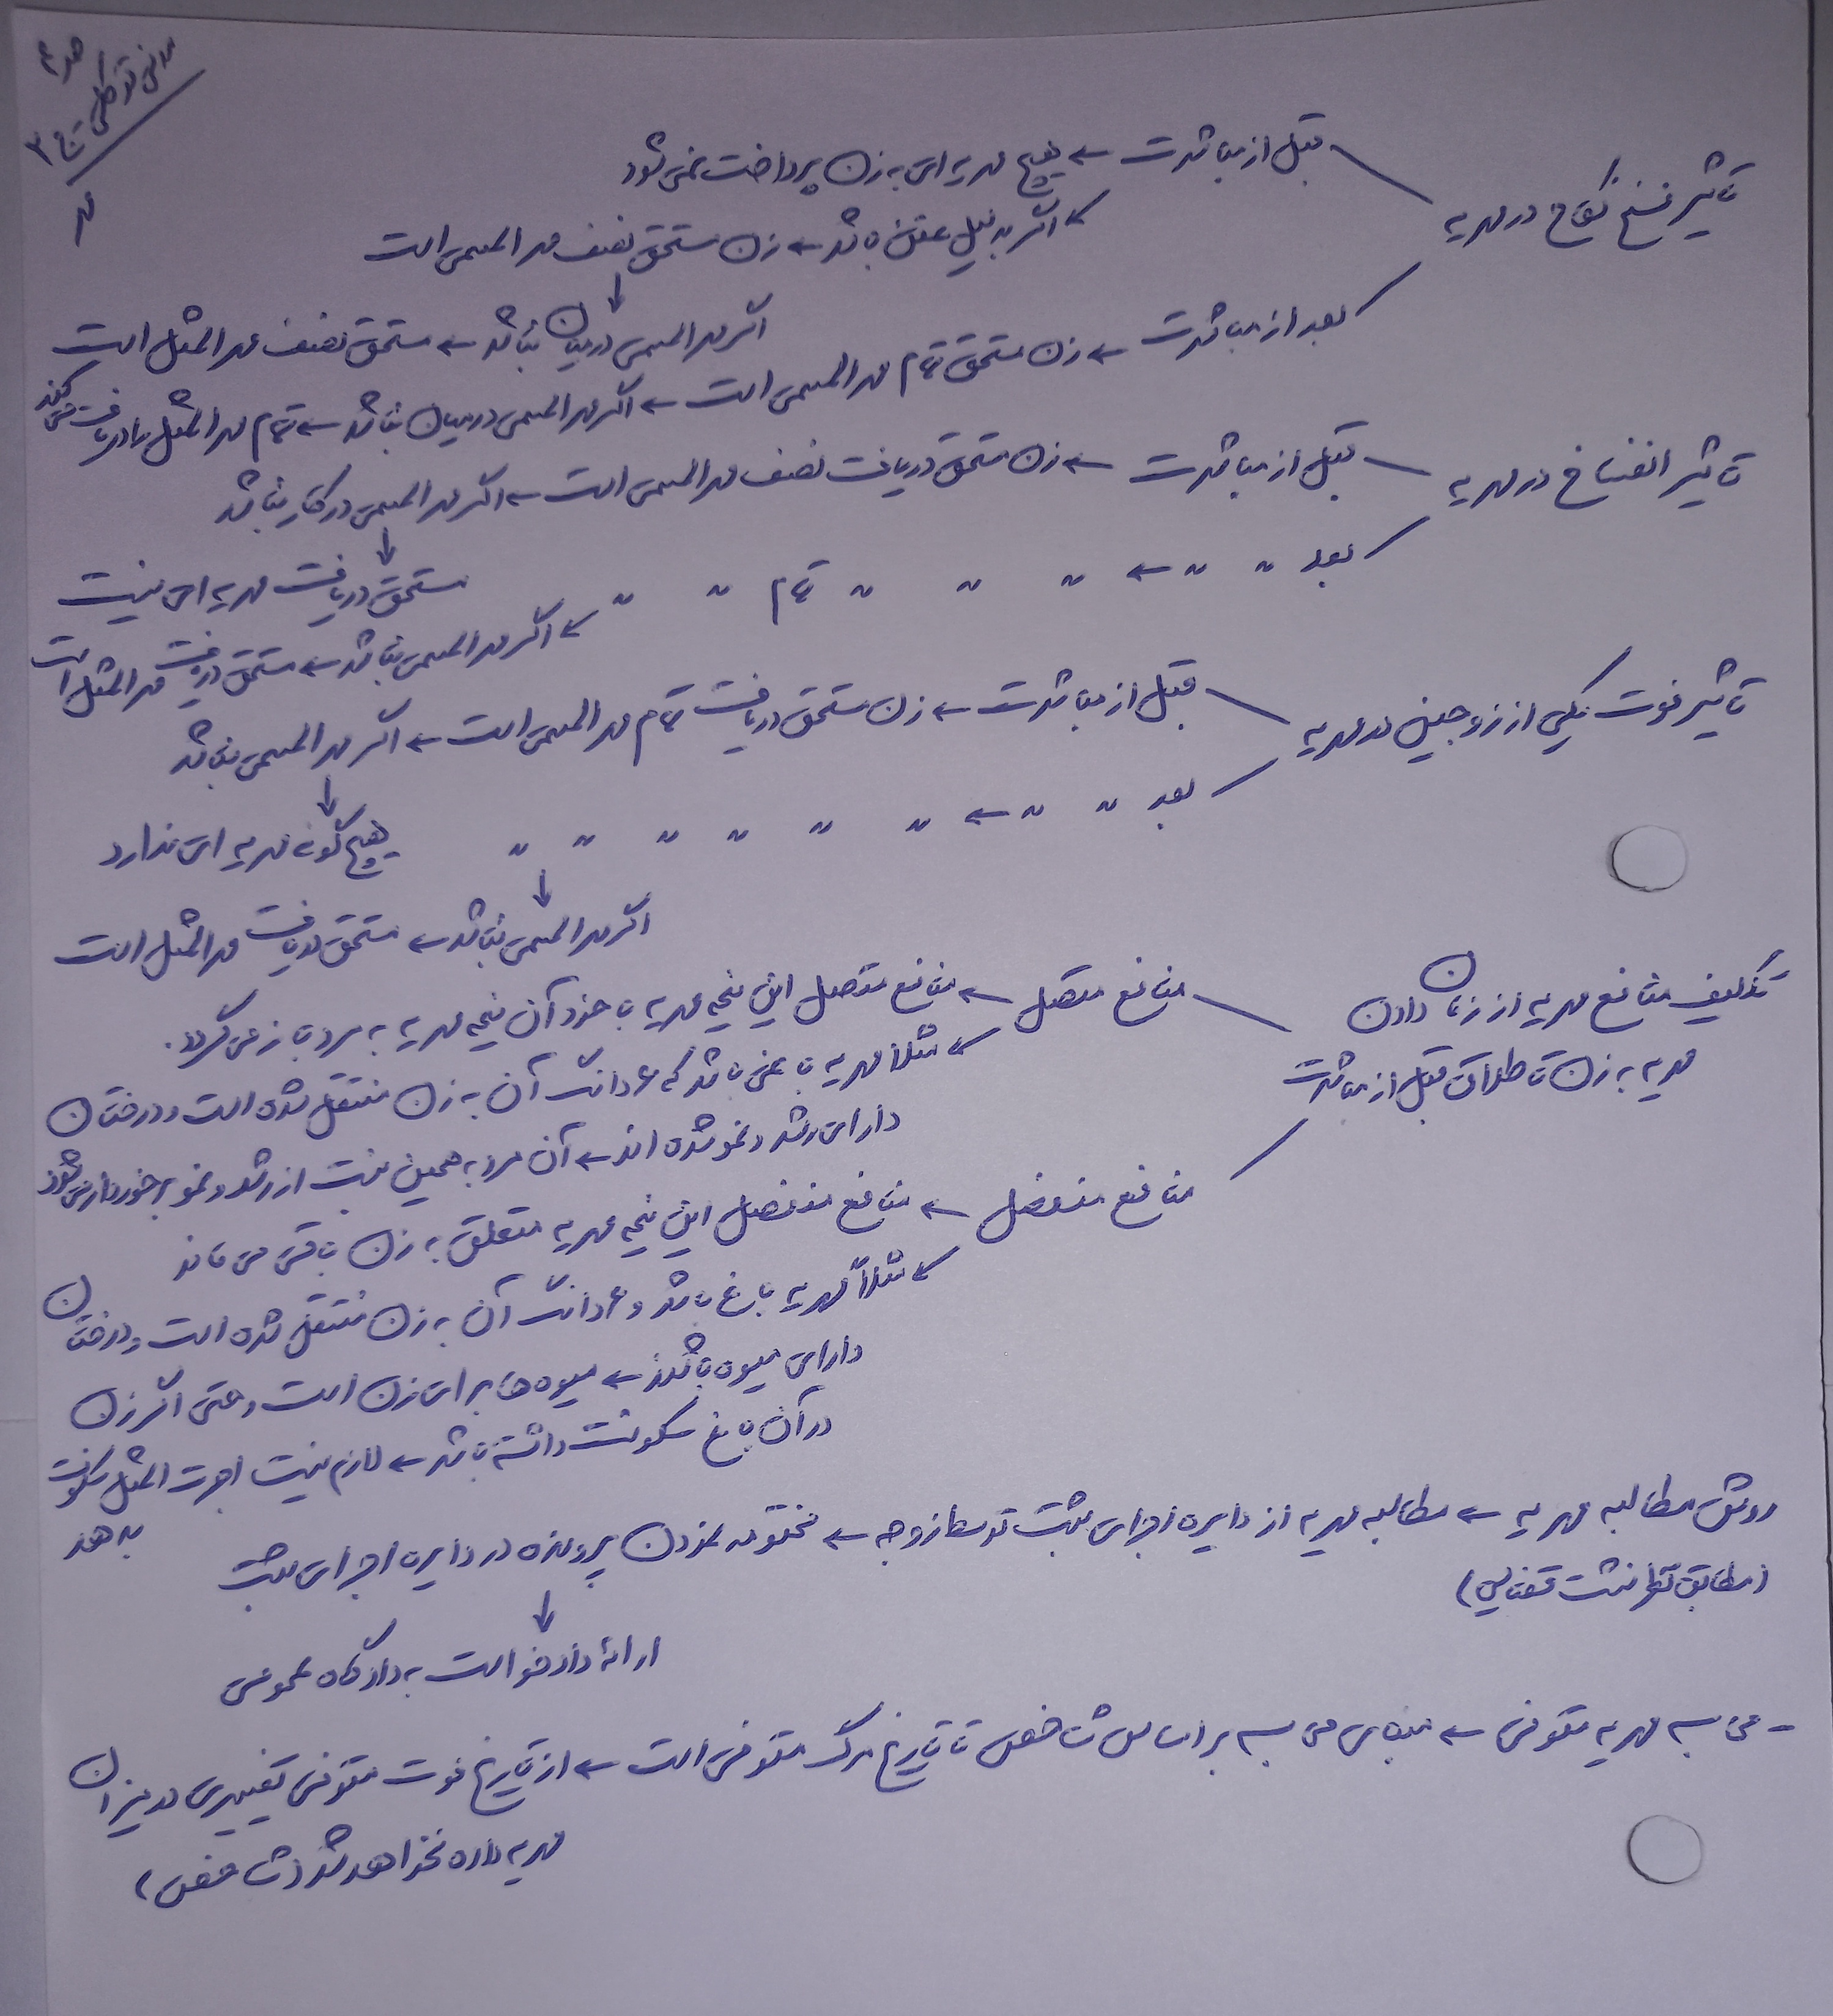 تأثیر فسخ نکاح در مهریه
قبل از مباشرت ← هیچ مهریه ای به زن پرداخت نمی شود
اگر به دلیل عنن باشد ← زن مستحق نصف مهرالمسمی است
↓
اگر مهرالمسمی در میان نباشد ← مستحق نصف مهرالمثل است
بعد از مباشرت ← زن مستحق تمام مهرالمسمی است ← اگر مهرالمسمی در میان نباشد ← تمام مهرالمثل را دریافت می کند
تأثیر انفساخ در مهریه
قبل از مباشرت ← زن مستحق دریافت نصف مهرالمسمی است ← اگر مهرالمسمی در کار نباشد
↓
مستحق دریافت مهریه ای نیست
بعد " " ← " " " تمام " "
اگر مهرالمسمی نباشد ← مستحق دریافت مهرالمثل است
تأثیر فوت یکی از زوجین در مهریه
قبل از مباشرت ← زن مستحق دریافت تمام مهرالمسمی است ← اگر مهرالمسمی نباشد
↓
هیچ گونه مهریه ای ندارد
بعد " " ← " " " " " "
↓
اگر مهرالمسمی نباشد ← مستحق دریافت مهرالمثل است
تکلیف منافع مهریه از زمان دادن
مهریه به زن تا طلاق قبل از مباشرت
منافع متصل ← منافع متصل این نیمه مهریه با خود آن نیمه مهریه به مرد باز می گردد.
مثلاً مهریه باغی باشد که ۶ دانگ آن به زن منتقل شده است و درختان
دارای رشد و نمو شده اند ← آن مرد به همین نسبت از رشد و نمو برخوردار می شود
منافع منفصل ← منافع منفصل این نیمه مهریه متعلق به زن باقی می ماند
مثلاً مهریه باغ باشد و ۶ دانگ آن به زن منتقل شده است و درختان
دارای میوه باشند ← میوه ها برای زن است و حتی اگر زن
در آن باغ سکونت داشته باشد ← لازم نیست اجرت المثل سکونت
بدهد
روش مطالبه مهریه ← مطالبه مهریه از دایره اجرای ثبت توسط زوجه ← مختومه نمودن پرونده در دایره اجرای ثبت
(مطابق نظر نشست قضایی)
↓
ارائه دادخواست به دادگاه عمومی
- محاسبه مهریه متوفی ← مبنای محاسبه براساس شاخص تا تاریخ مرگ متوفی است ← از تاریخ فوت متوفی تغییری در میزان
مهریه داده نخواهد شد (شاخص)